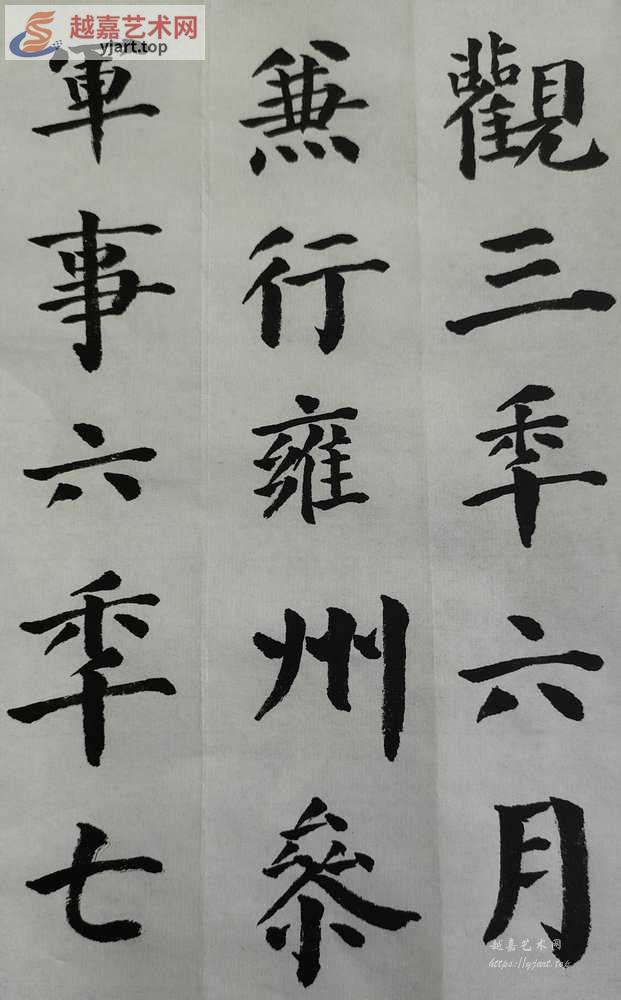 越嘉艺术网
yjart.top
觀三秊六月
兼行雍州叅
軍事六秊七
越嘉艺术网
https://yjart.top